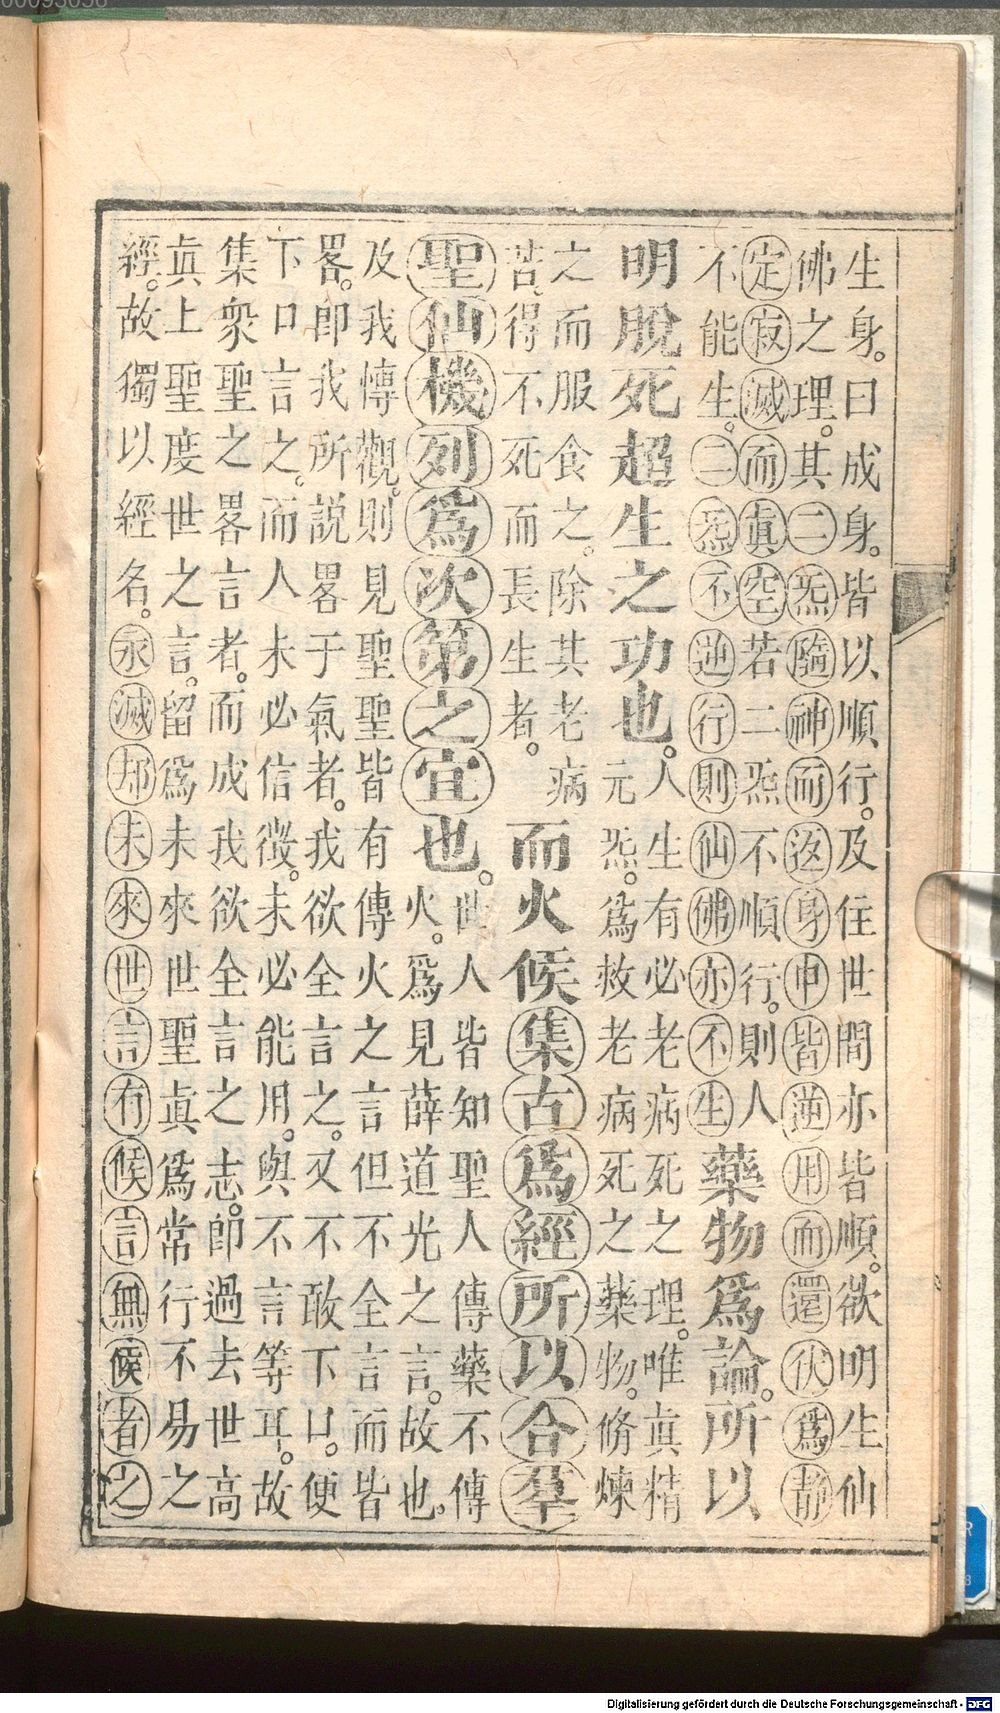 生身。曰成身。皆以順行。及住世間亦皆順。欲明生仙
佛之理。其二炁隨神而返身中皆逆用而還伏爲靜
定寂滅而眞空若二炁不順行。則人
不能生。二炁不逆行則仙佛亦不生
藥物爲論。所以
明脫死超生之功也。
人生有必老病死之理。唯眞精
元炁。爲救老病死之藥物。脩煉
之而服食之。除其老病
苦。得不死而長生者。
而火候集古爲經所以合羣
聖仙機列爲次第之宜也。
世人皆知聖人傳藥不傳
火。爲見薛道光之言。故也。
及我慱觀。則見聖聖皆有傳火之言但不全言而皆
畧。卽我所説畧于氣者。我欲全言之。又不敢下口。便
下口言之。而人未必信徵。未必能用。與不言等耳。故
集衆聖之畧言者。而成我欲全言之志。卽過去世高
眞上聖度世之言。留爲未來世聖眞爲常行不易之
經。故獨以經名。永滅却未來世言有候言無候者之
Digitalisierung gefördert durch die Deutsche Forschungsgemeinschaft - DFG